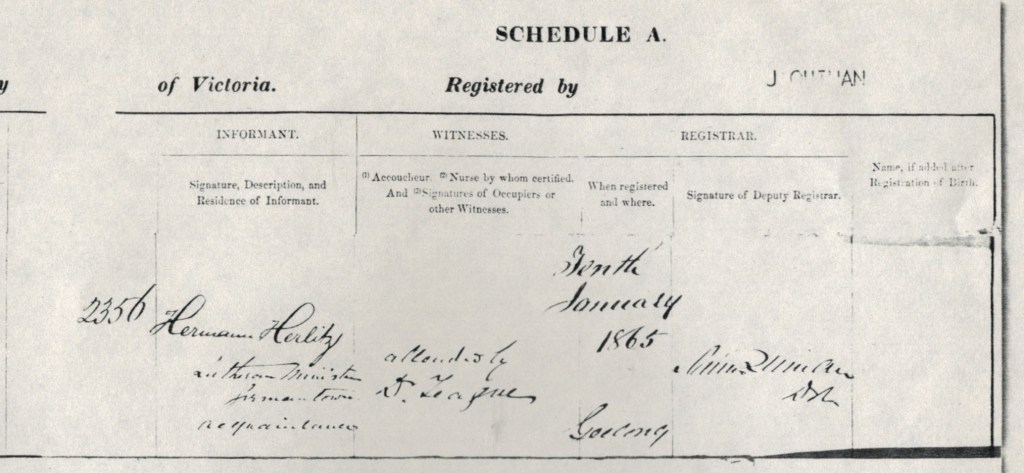 SCHEDULE A.
y of Victoria. Registered by
INFORMANT. WITNESSES. REGISTRAR.
Signature, Description, and
Residence of Informant.
(1) Accoucheur. (2) Nurse by whom certified.
And (3) Signatures of Occupiers or
other Witnesses.
When registered
and where.
Signature of Deputy Registrar.
Name, if added after
Registration of Birth.
2356
Hermann Herlitz
Lutheran Minister
Germantown
acquaintance
attended by
Dr. League
Tenth
January
1865
Geelong